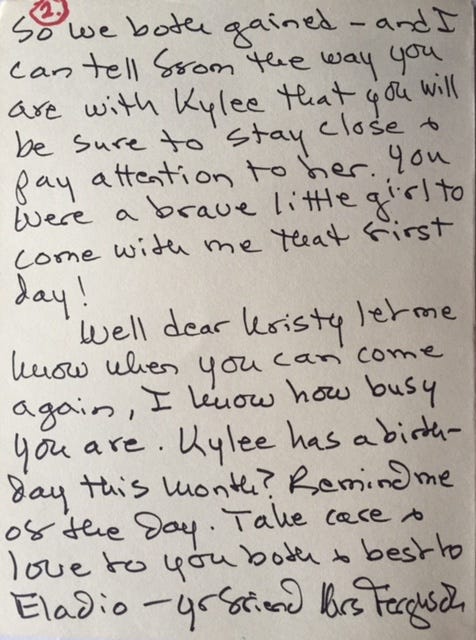 2.
So we both gained - and I
can tell from the way you
are with Kylee that you will
be sure to stay close &
pay attention to her. You
were a brave little girl to
come with me that first
day!
Well dear Kristy let me
know when you can come
again, I know how busy
you are. Kylee has a birth-
day this month? Remind me
of the day. Take care &
love to you both & best to
Eladio - yr friend Mrs Ferguson